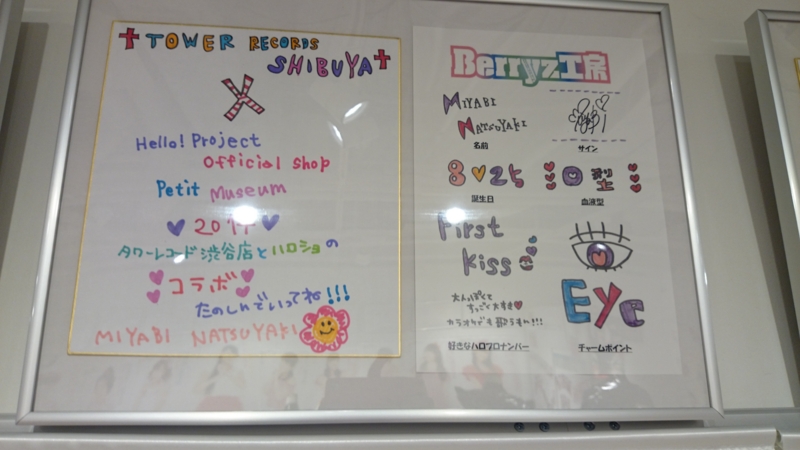 TOWER RECORDS
SHIBUYA
X
Hello! Project
Official Shop
Petit Museum
タワーレコード渋谷店とハロショの
コラボ
たのしんでいってね!!!
MIYABI NATSUYAKI
Berryz工房
MIYABI
NATSUYAKI
名前
サイン
8♥25
誕生日
O型
血液型
First
Kiss
大人っぽくて
すっごく大すき♥
カラオケでも歌うよ!!!
好きなハロプロナンバー
EyE
チャームポイント